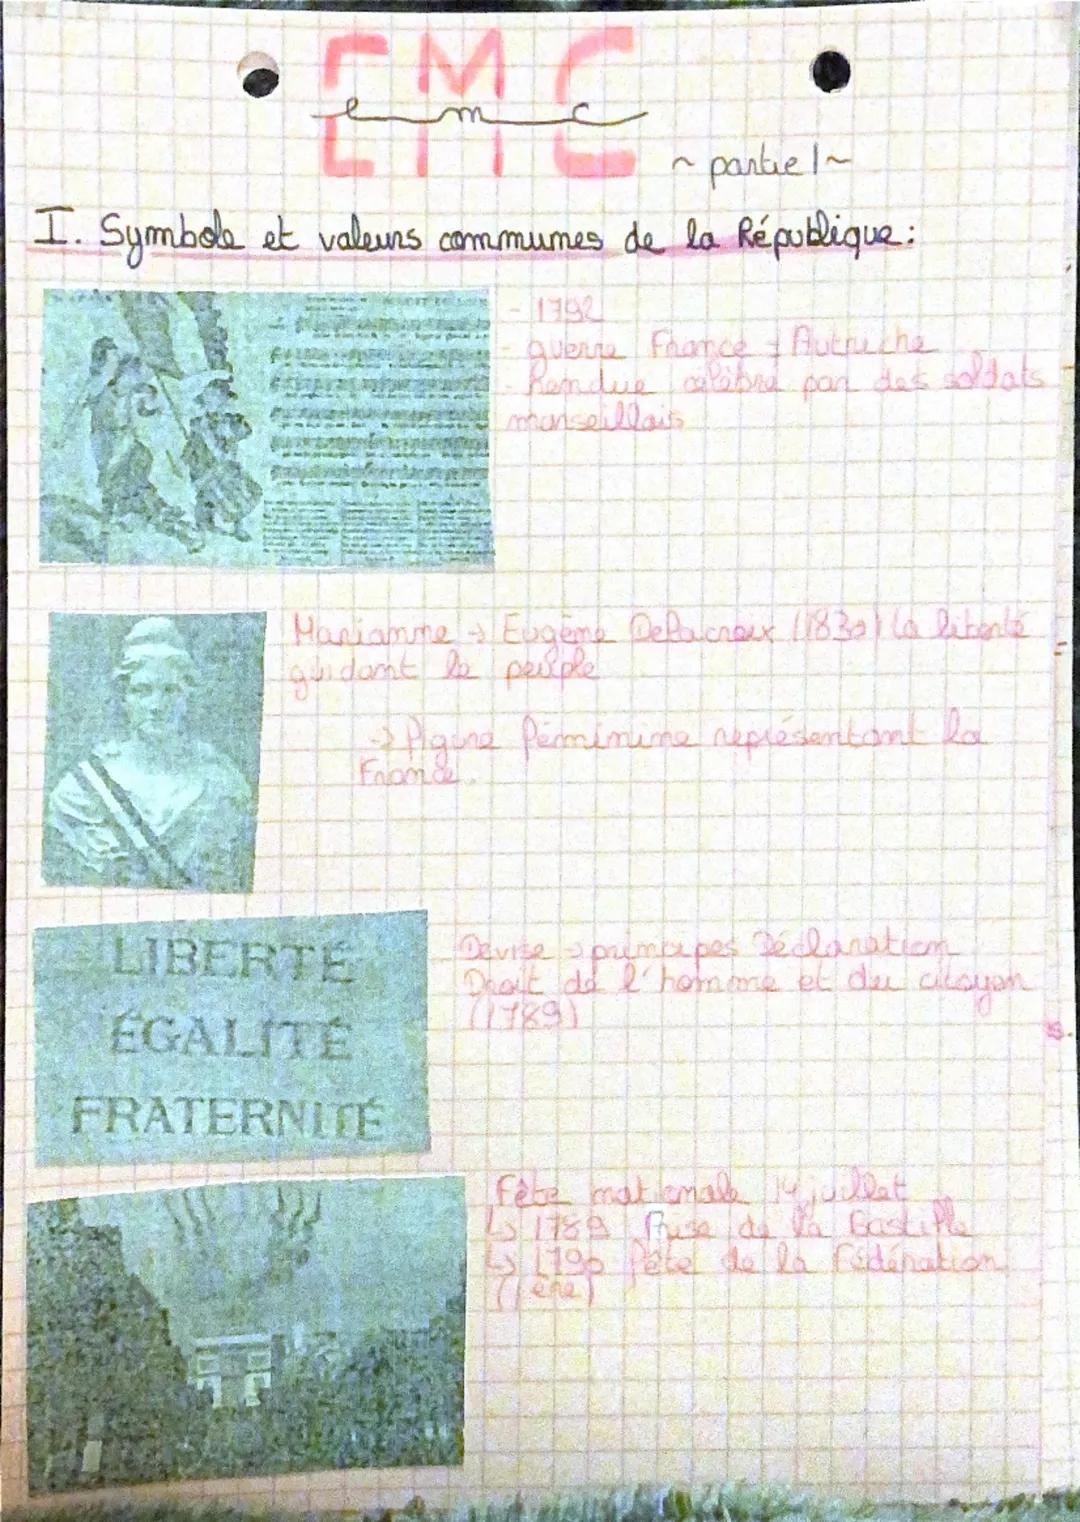 EMC
emc
~ partie 1 ~
I. Symbole et valeurs communes de la République :
- 1792
- guerre France → Autriche
- Rendue célèbre par des soldats
marseillais
Marianne → Eugène Delacroix (1830) La liberté
guidant le peuple
→ figure féminine représentant la
France.
LIBERTÉ
ÉGALITÉ
FRATERNITÉ
Devise → principes Déclaration
Droit de l'homme et du citoyen
(1789)
Fête nationale 14 juillet
↳ 1789 Prise de la Bastille
↳ 1790 fête de la Fédération
(1ère)